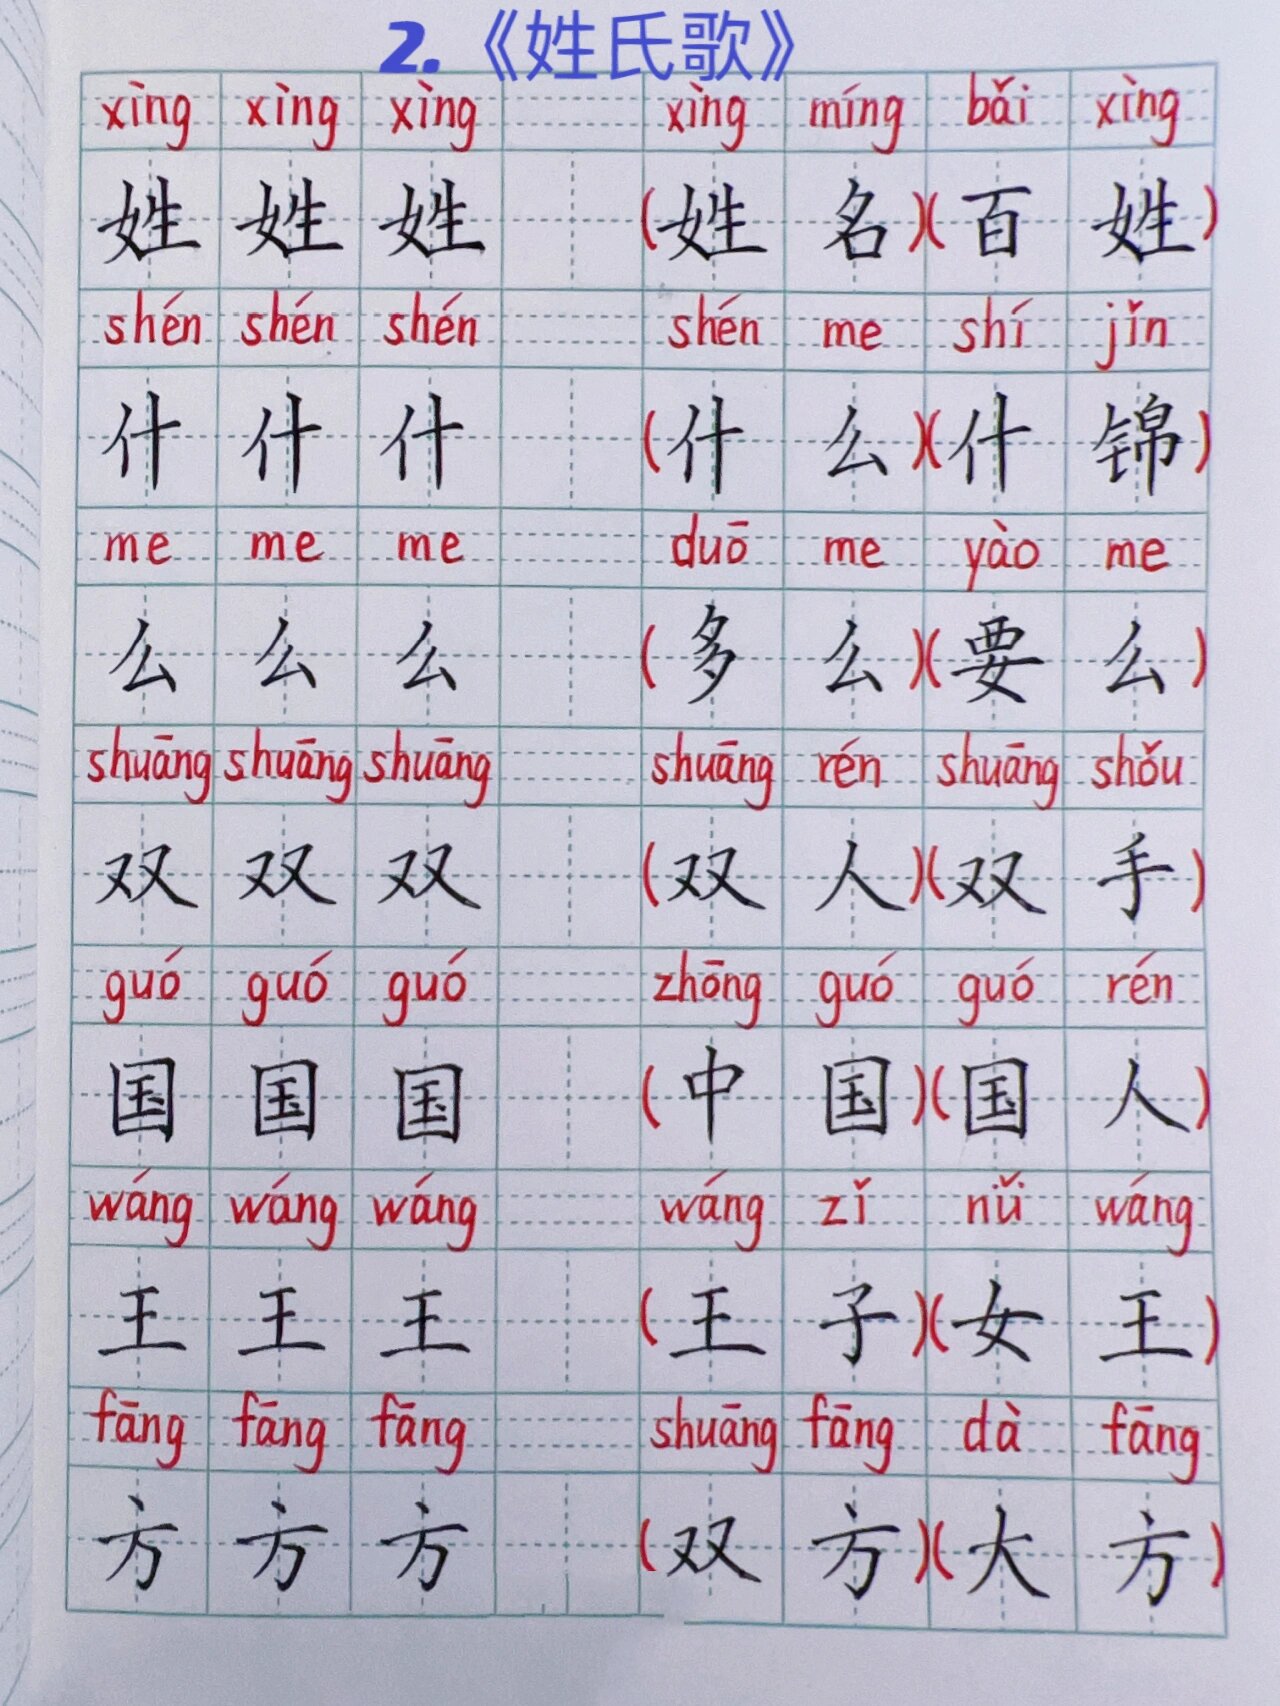 2.《姓氏歌》
xìng xìng xìng xìng míng bǎi xìng
姓 姓 姓 (姓 名)(百 姓)
shén shén shén shén me shí jǐn
什 什 什 (什 么)(什 锦)
me me me duō me yào me
么 么 么 (多 么)(要 么)
shuāng shuāng shuāng shuāng rén shuāng shǒu
双 双 双 (双 人)(双 手)
guó guó guó zhōng guó guó rén
国 国 国 (中 国)(国 人)
wáng wáng wáng wáng zǐ nǚ wáng
王 王 王 (王 子)(女 王)
fāng fāng fāng shuāng fāng dà fāng
方 方 方 (双 方)(大 方)